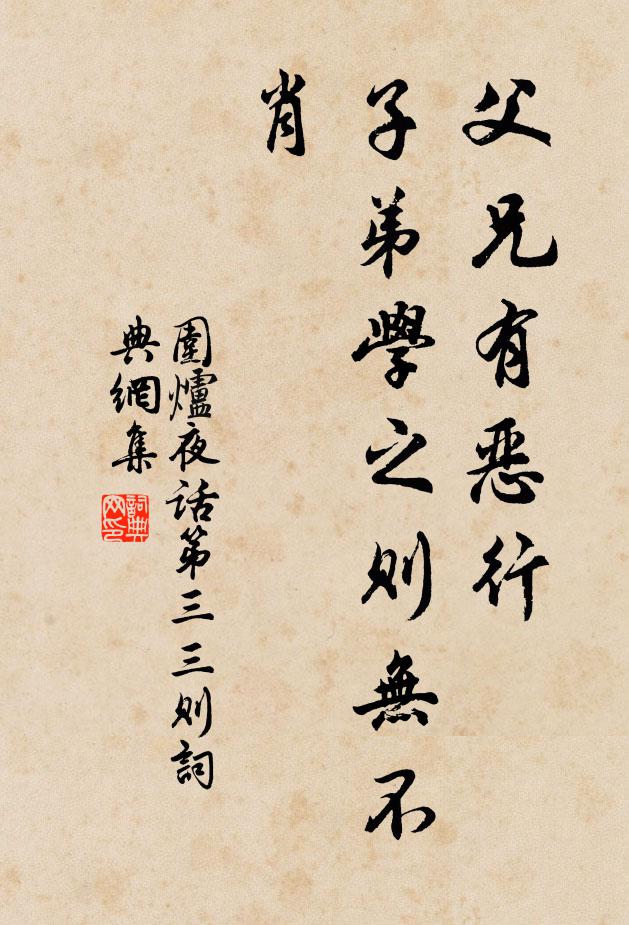 父兄有恶行
子弟學之則無不
肖
圍爐夜话第三三则詞
典網集
詞典
网印